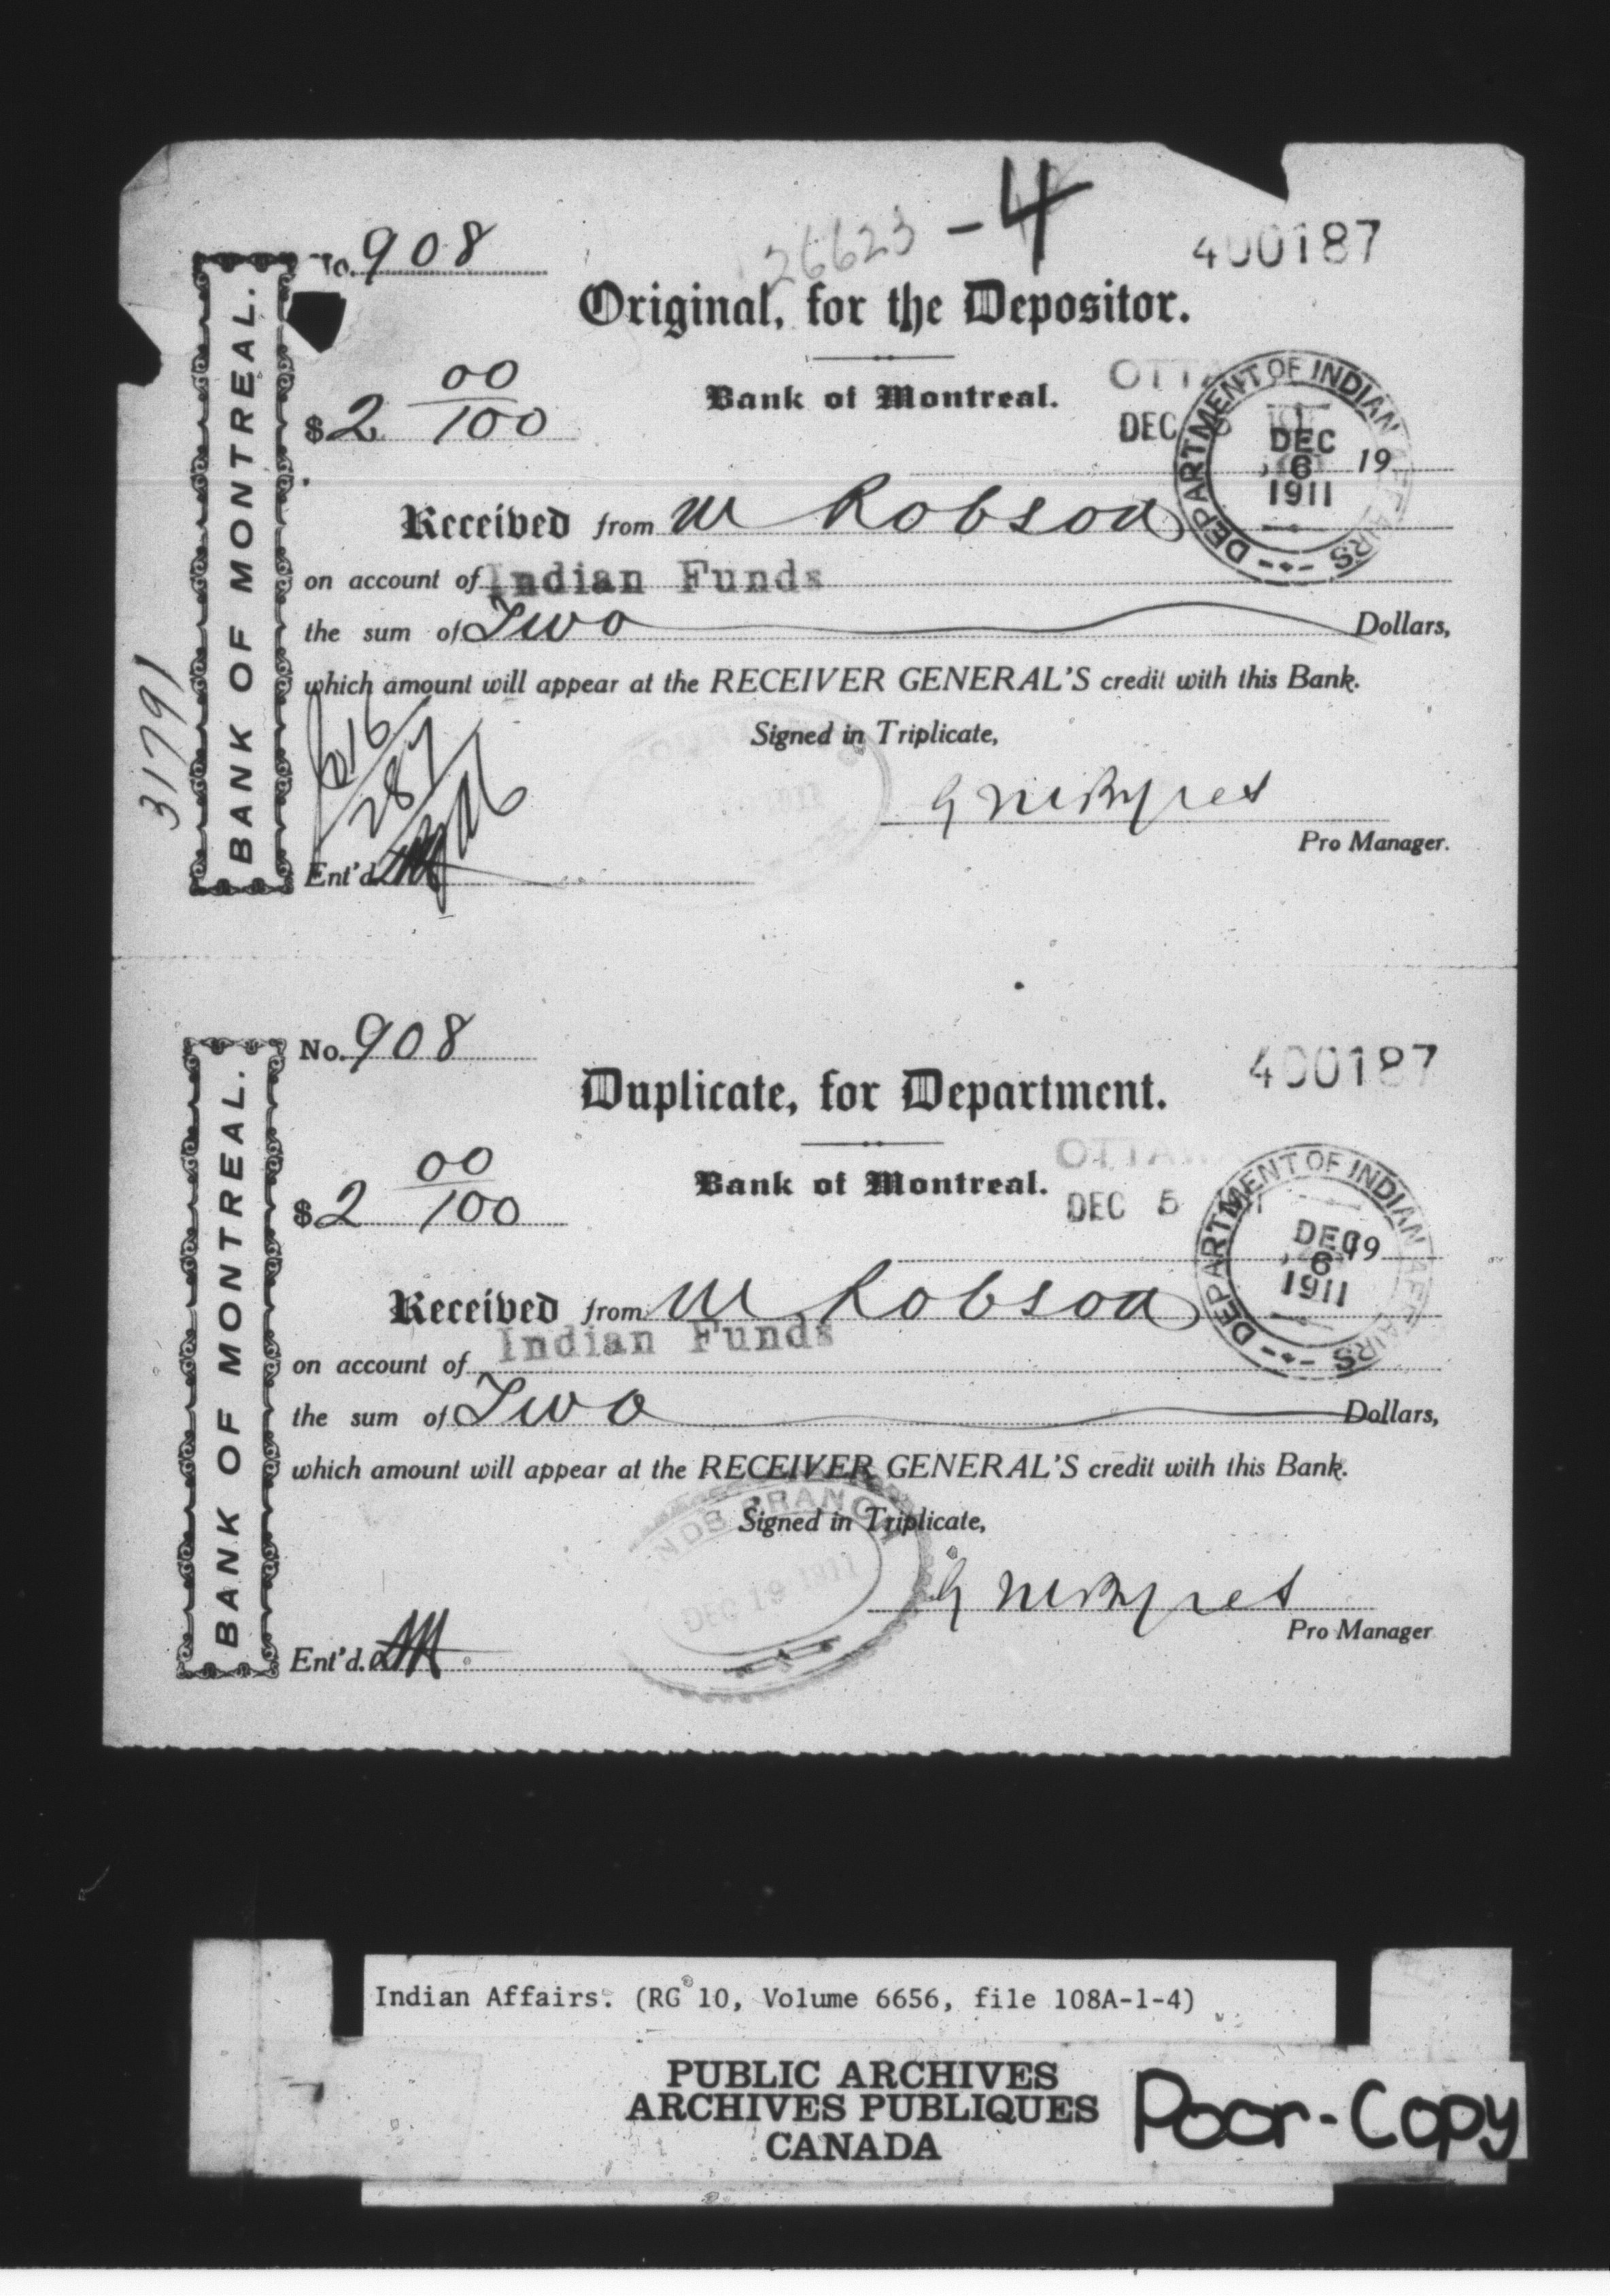 26623 -4
400187
No. 908
Original, for the Depositor.
$2 00/100
Bank of Montreal.
OTTA
DEC
DEPARTMENT OF INDIAN AFFAIRS
DEC 6 1911
19
Received from M Robson
on account of Indian Funds
the sum of Two Dollars,
which amount will appear at the RECEIVER GENERAL'S credit with this Bank.
Signed in Triplicate,
616
287
31791
Pro Manager.
Ent'd.
BANK OF MONTREAL.
No. 908
400187
Duplicate, for Department.
$2 00/100
Bank of Montreal.
OTTA
DEC 5
DEPARTMENT OF INDIAN AFFAIRS
DEC 6 1911
19
Received from M Robson
on account of Indian Funds
the sum of Two Dollars,
which amount will appear at the RECEIVER GENERAL'S credit with this Bank.
Signed in Triplicate,
BRANCH
DEC 19 1911
Pro Manager
Ent'd.
BANK OF MONTREAL.
Indian Affairs. (RG 10, Volume 6656, file 108A-1-4)
PUBLIC ARCHIVES
ARCHIVES PUBLIQUES
CANADA
Poor-Copy